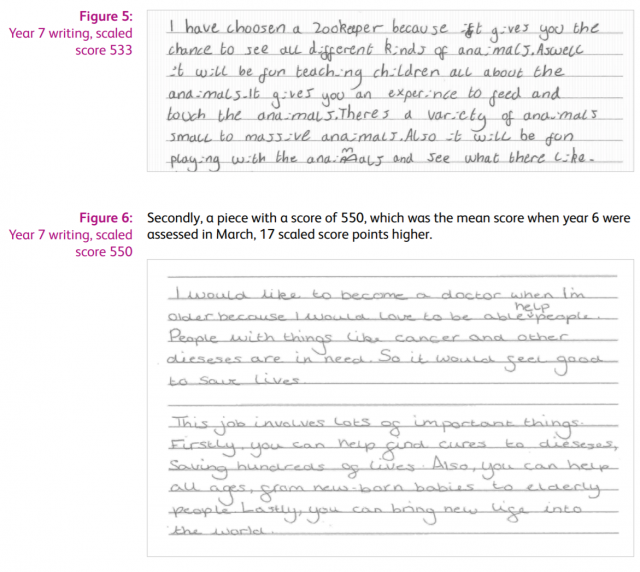 Figure 5:
Year 7 writing, scaled
score 533
I have choosen a Zookeaper because it gives you the
chance to see all different kinds of anaimals. Aswell
it will be fun teaching children all about the
anaimals. It gives you an experince to feed and
touch the anaimals. Theres a varicty of anaimals
small to massive anaimals. Also it will be fun
playing with the anaimals and see what there like.
Figure 6:
Year 7 writing, scaled
score 550
Secondly, a piece with a score of 550, which was the mean score when year 6 were
assessed in March, 17 scaled score points higher.
I would like to become a doctor when I'm
help
older because I would love to be able people.
People with things like cancer and other
dieseses are in need. So it would feel good
to save lives.
This job involves lots of important things.
Firstly, you can help find cures to dieseses,
Saving hundreds of lives. Also, you can help
all ages, from new-born babies to elderly
people Lastly, you can bring new life into
the world.